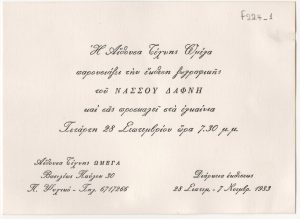 F924_1
Ἡ Αἴθουσα Τέχνης Ὠμέγα
παρουσιάζει τὴν ἔκθεση ζωγραφικῆς
τοῦ ΝΑΣΣΟΥ ΔΑΦΝΗ
καὶ σᾶς προσκαλεῖ στὰ ἐγκαίνια
Τετάρτη 28 Σεπτεμβρίου ὥρα 7.30 μ.μ.
Αἴθουσα Τέχνης ΩΜΕΓΑ
Βασιλέως Παύλου 30
Π. Ψυχικό - Τηλ. 6717266
Διάρκεια ἐκθέσεως
28 Σεπτεμ. - 7 Νοεμβρ. 1983